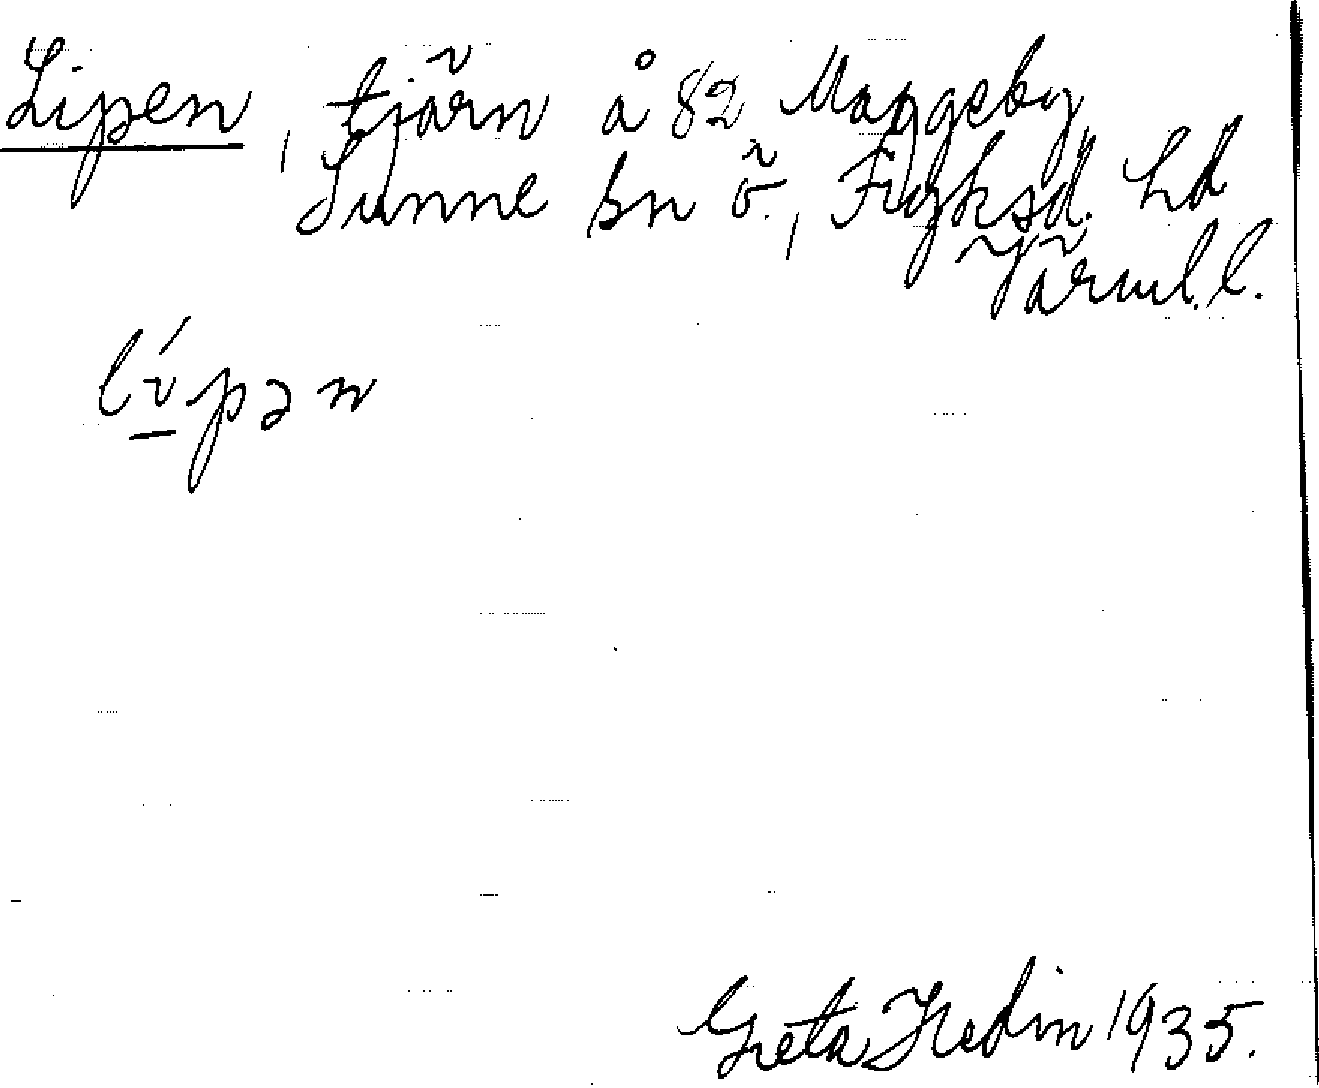 Lipen, tjärn å 82 Mangeby
Sunne sn ö., Fryksd. hd
Värml. l.
lípən
Greta Hedin 1935.